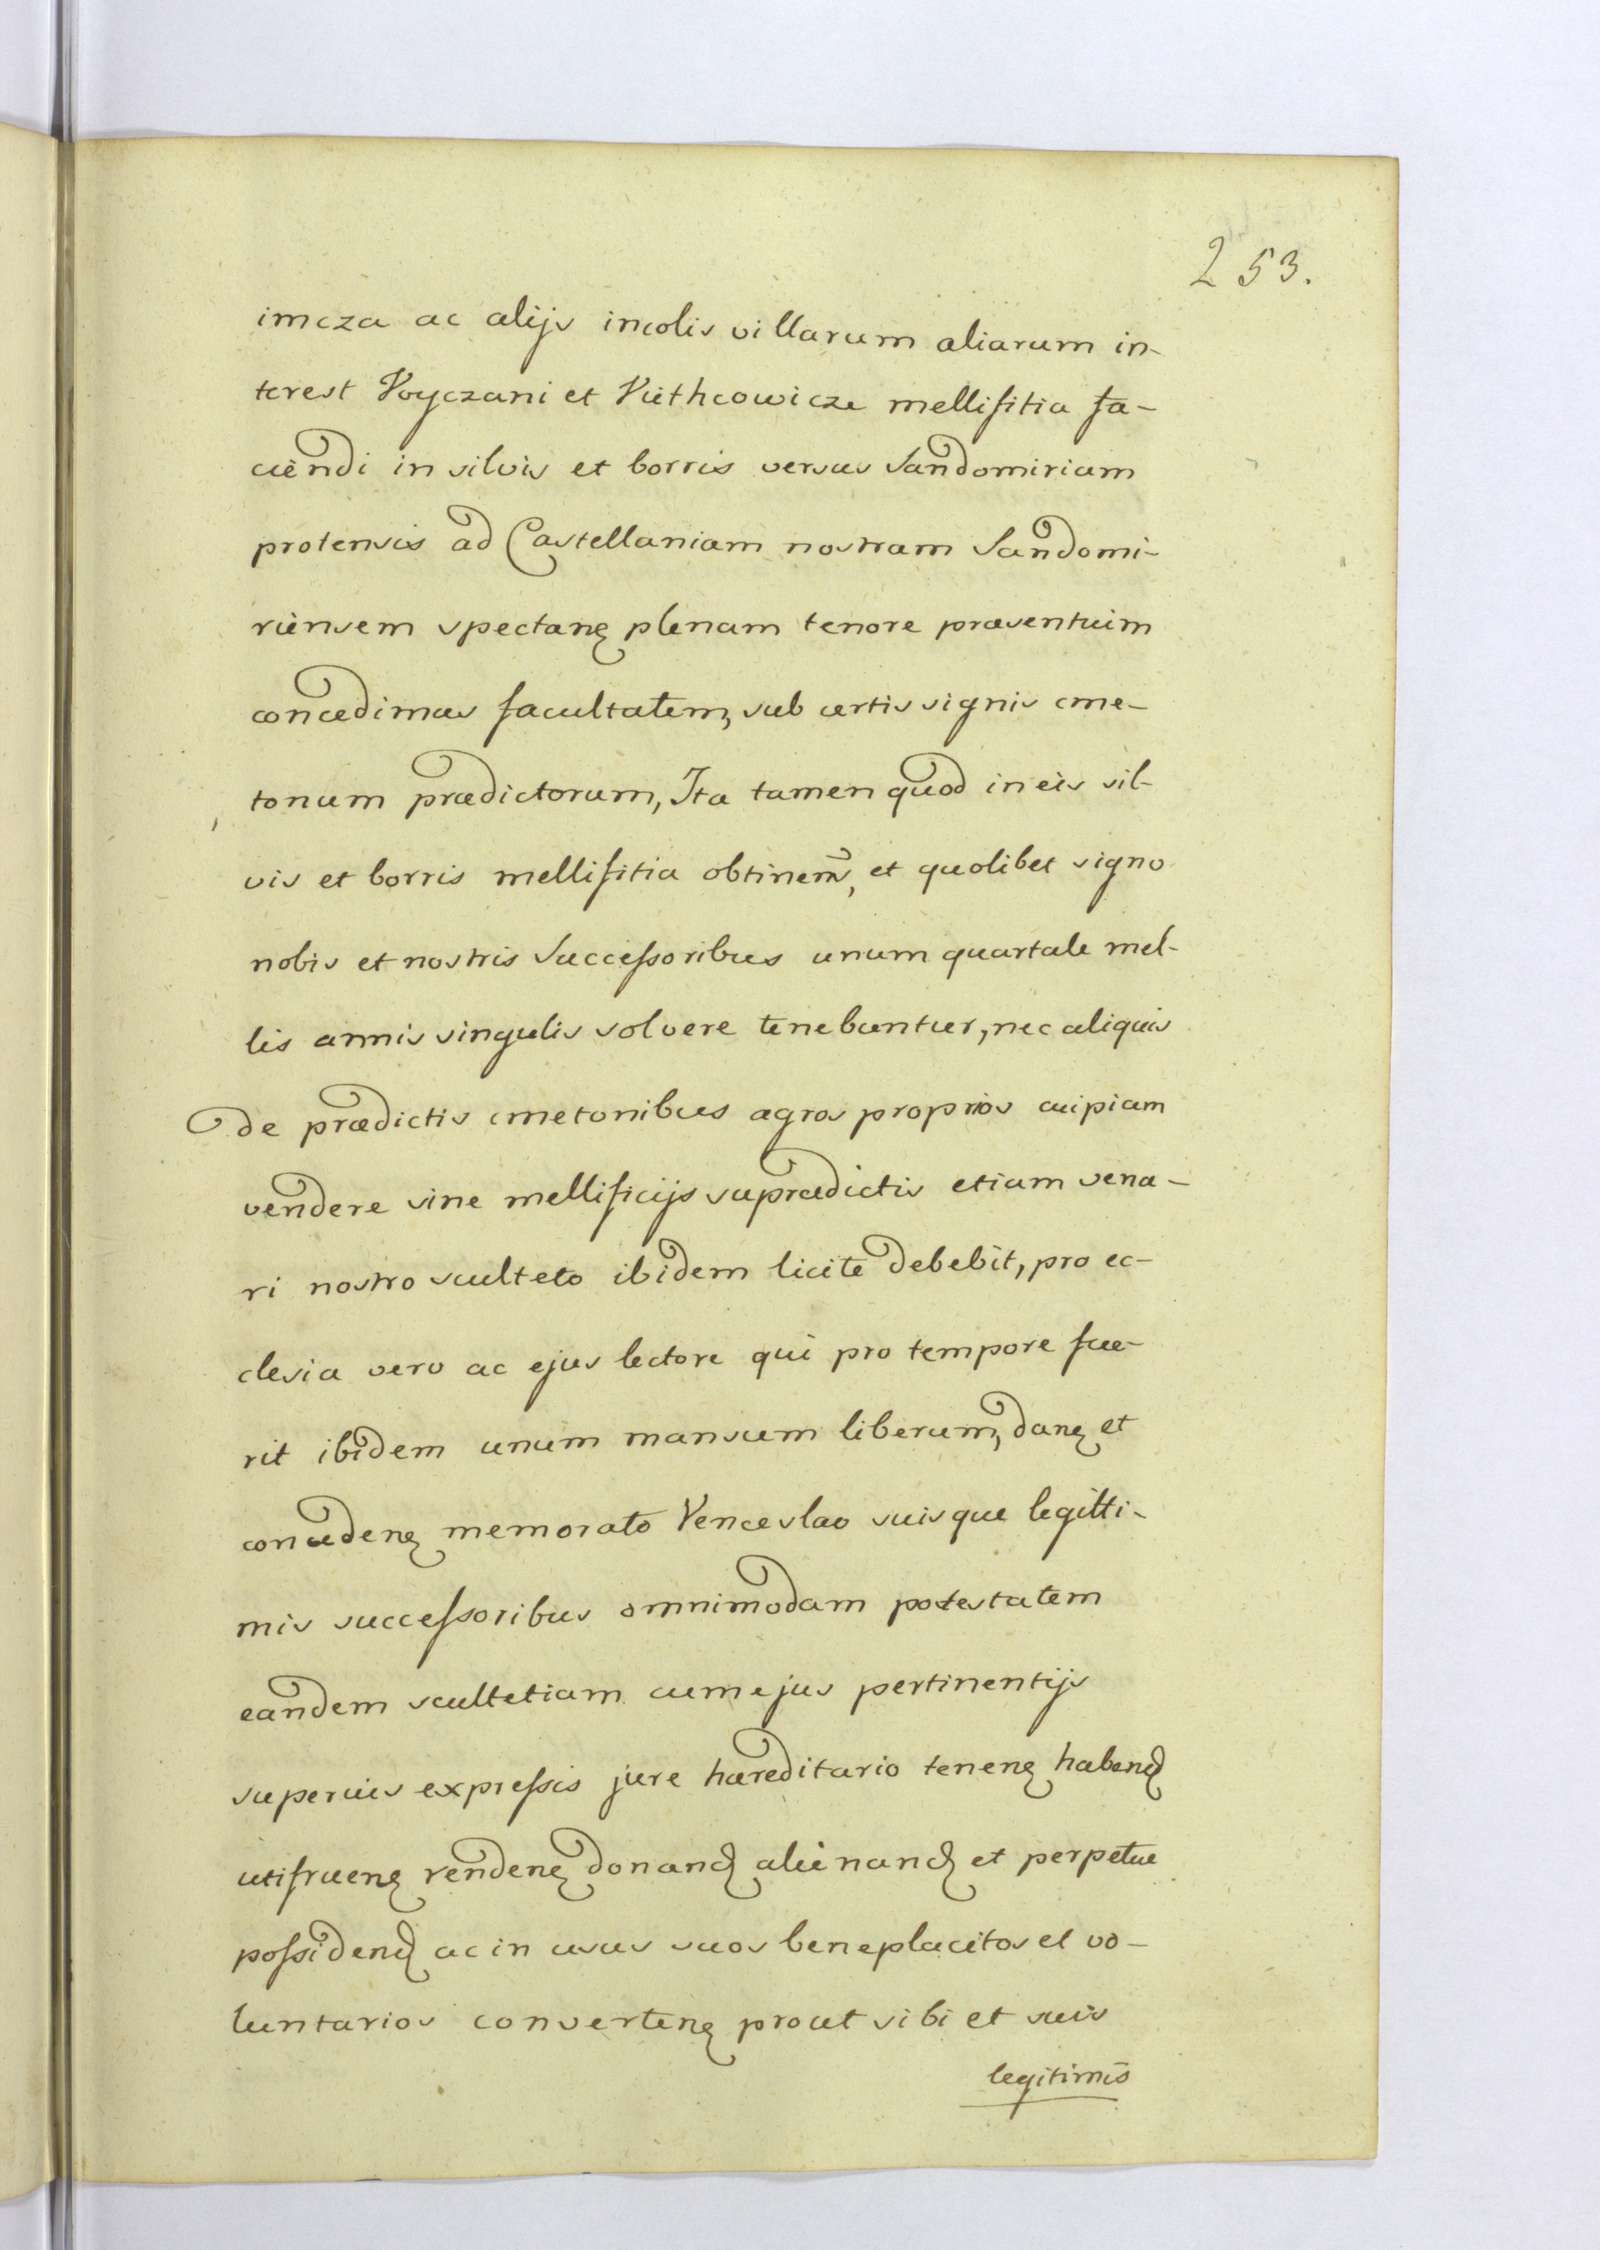 253.
imcza ac alijs incolis villarum aliarum in-
terest Voyczani et Viethcowicze mellifitia fa-
ciendi in silvis et borris versus Sandomiriam
protensis ad Castellaniam nostram Sandomi-
riensem spectanꝫ plenam tenore præsentium
concedimus facultatem, sub certis signis cme-
tonum prædictorum, Ita tamen quod in eis sil-
vis et borris mellifitia obtinem̃, et quolibet signo
nobis et nostris Successoribus unum quartale mel-
lis annis singulis solvere tenebuntur, nec aliquis
de prædictis cmetonibus agros proprios cuipiam
vendere sine mellificijs suprædictis etiam vena-
ri nostro sculteto ibidem licite debebit, pro ec-
clesia vero ac ejus lectore qui pro tempore fue-
rit ibidem unum mansum liberum, danꝫ et
concedenꝫ memorato Venceslao suisque legitti-
mis successoribus omnimodam potestatem
eandem scultetiam cum ejus pertinentijs
superius expressis jure hæreditario tenenꝫ habenꝫ
utifruenꝫ vendenꝫ donanꝫ alienanꝫ et perpetue
possidenꝫ ac in usus suos beneplacitos et vo-
luntarios convertenꝫ prout sibi et suis
legitimis